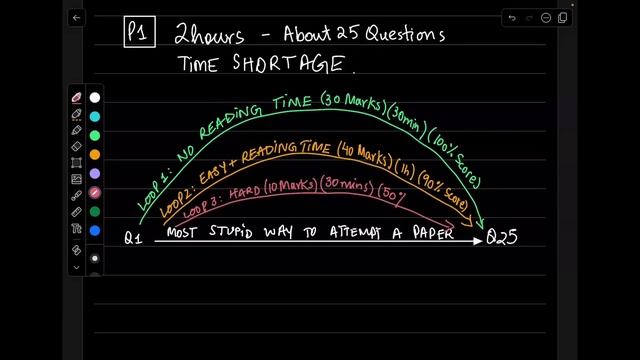 P1 2 hours - About 25 Questions
TIME SHORTAGE.
LOOP 1: NO READING TIME (30 Marks) (30min) (100% Score)
LOOP2: EASY + READING TIME (40 Marks) (1h) (90% Score)
LOOP 3: HARD (10 Marks) (30mins) (50%
Q1 MOST STUPID WAY TO ATTEMPT A PAPER Q25